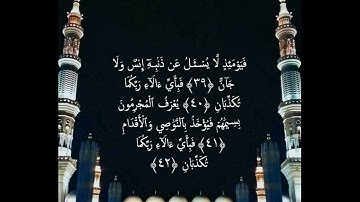 فَيَوْمَئِذٍ لَّا يُسْـَٔلُ عَن ذَنۢبِهِۦٓ إِنسٌ وَلَا
جَآنٌّ ﴿٣٩﴾ فَبِأَىِّ ءَالَآءِ رَبِّكُمَا
تُكَذِّبَانِ ﴿٤٠﴾ يُعْرَفُ ٱلْمُجْرِمُونَ
بِسِيمَٰهُمْ فَيُؤْخَذُ بِٱلنَّوَٰصِى وَٱلْأَقْدَامِ
﴿٤١﴾ فَبِأَىِّ ءَالَآءِ رَبِّكُمَا
تُكَذِّبَانِ ﴿٤٢﴾